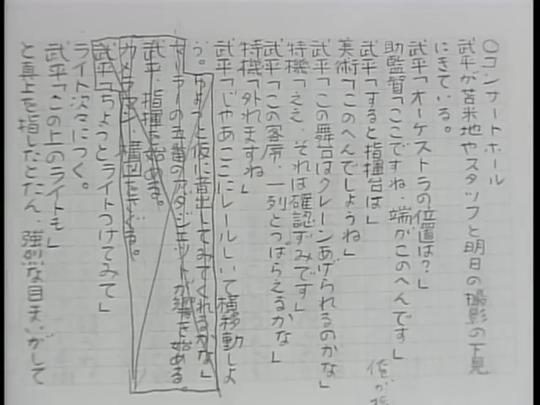 ○コンサートホール
武平が苫米地やスタッフと明日の撮影の下見
にきている。
武平「オーケストラの位置は?」
助監督「ここですね。端がこのへんです」
武平「すると指揮台は」
美術「このへんでしょうね」
武平「この舞台はクレーンあげられるのかな」
特機「ええ、それは確認ずみです」
武平「この客席、一列とっぱらえるかな」
特機「外れますね」
武平「じゃあここにレールしいて横移動しよ
う。ちょっと仮に音出してみてくれるかな」
マーラーの五番のアダジェットが響き始める。
武平、指揮を始める。
カメラマン、構図をさぐる。
武平「ちょっとライトつけてみて」
ライト次々につく。
武平「この上のライトも」
と真上を指したとたん、強烈な目まいがして